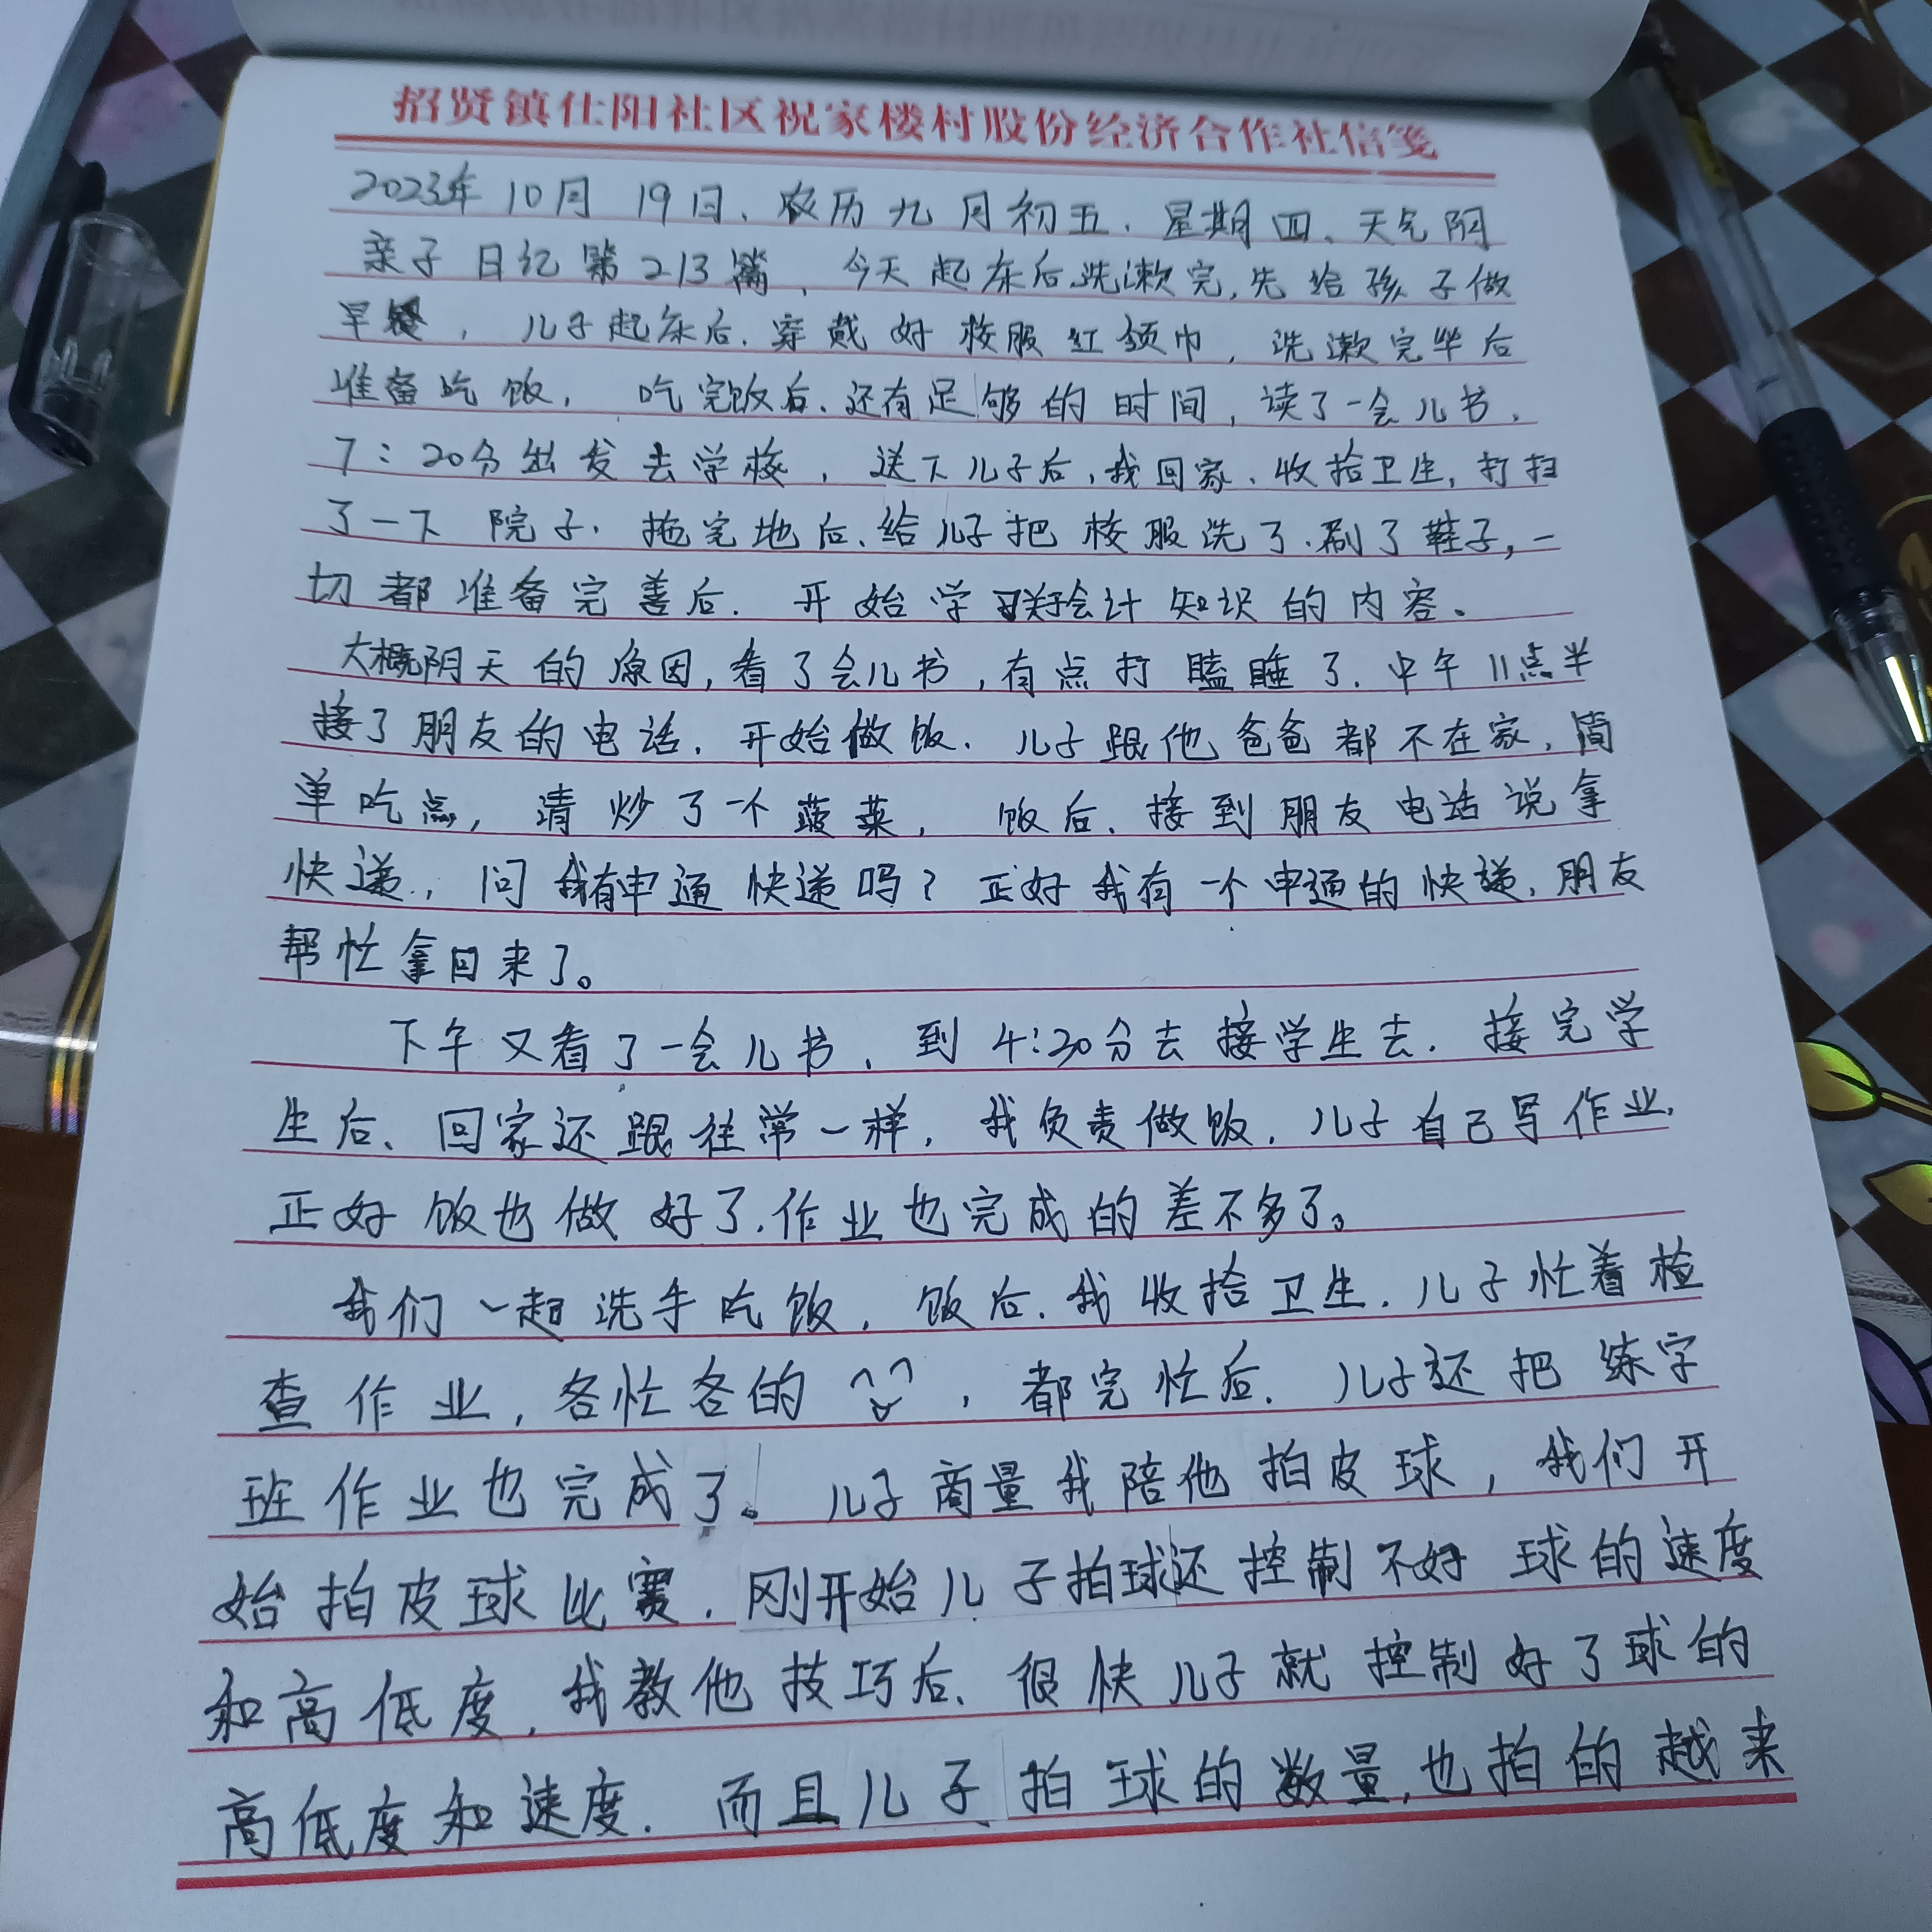 招贤镇仕阳社区祝家楼村股份经济合作社信笺
2023年10月19日、农历九月初五、星期四、天气阴
亲子日记第213篇、今天起床后洗漱完,先给孩子做
早餐,儿子起床后、穿戴好校服红领巾,洗漱完毕后
准备吃饭,吃完饭后、还有足够的时间,读了一会儿书、
7:20分出发去学校,送下儿子后,我回家、收拾卫生,打扫
了一下院子、拖完地后、给儿子把校服洗了、刷了鞋子,一
切都准备完善后、开始学习关于会计知识的内容。
大概阴天的原因,看了会儿书,有点打瞌睡了、中午11点半
接了朋友的电话、开始做饭、儿子跟他爸爸都不在家,简
单吃点,清炒了一个菠菜,饭后、接到朋友电话说拿
快递,问我有申通快递吗?正好我有一个申通的快递,朋友
帮忙拿回来了。
下午又看了一会儿书、到4:30分去接学生去、接完学
生后、回家还跟往常一样,我负责做饭、儿子自己写作业、
正好饭也做好了、作业也完成的差不多了。
我们一起洗手吃饭,饭后、我收拾卫生、儿子忙着检
查作业,各忙各的,都完忙后、儿子还把练字
班作业也完成了。儿子商量我陪他拍皮球,我们开
始拍皮球比赛、刚开始儿子拍球还控制不好球的速度
和高低度,我教他技巧后、很快儿子就控制好了球的
高低度和速度、而且儿子拍球的数量,也拍的越来